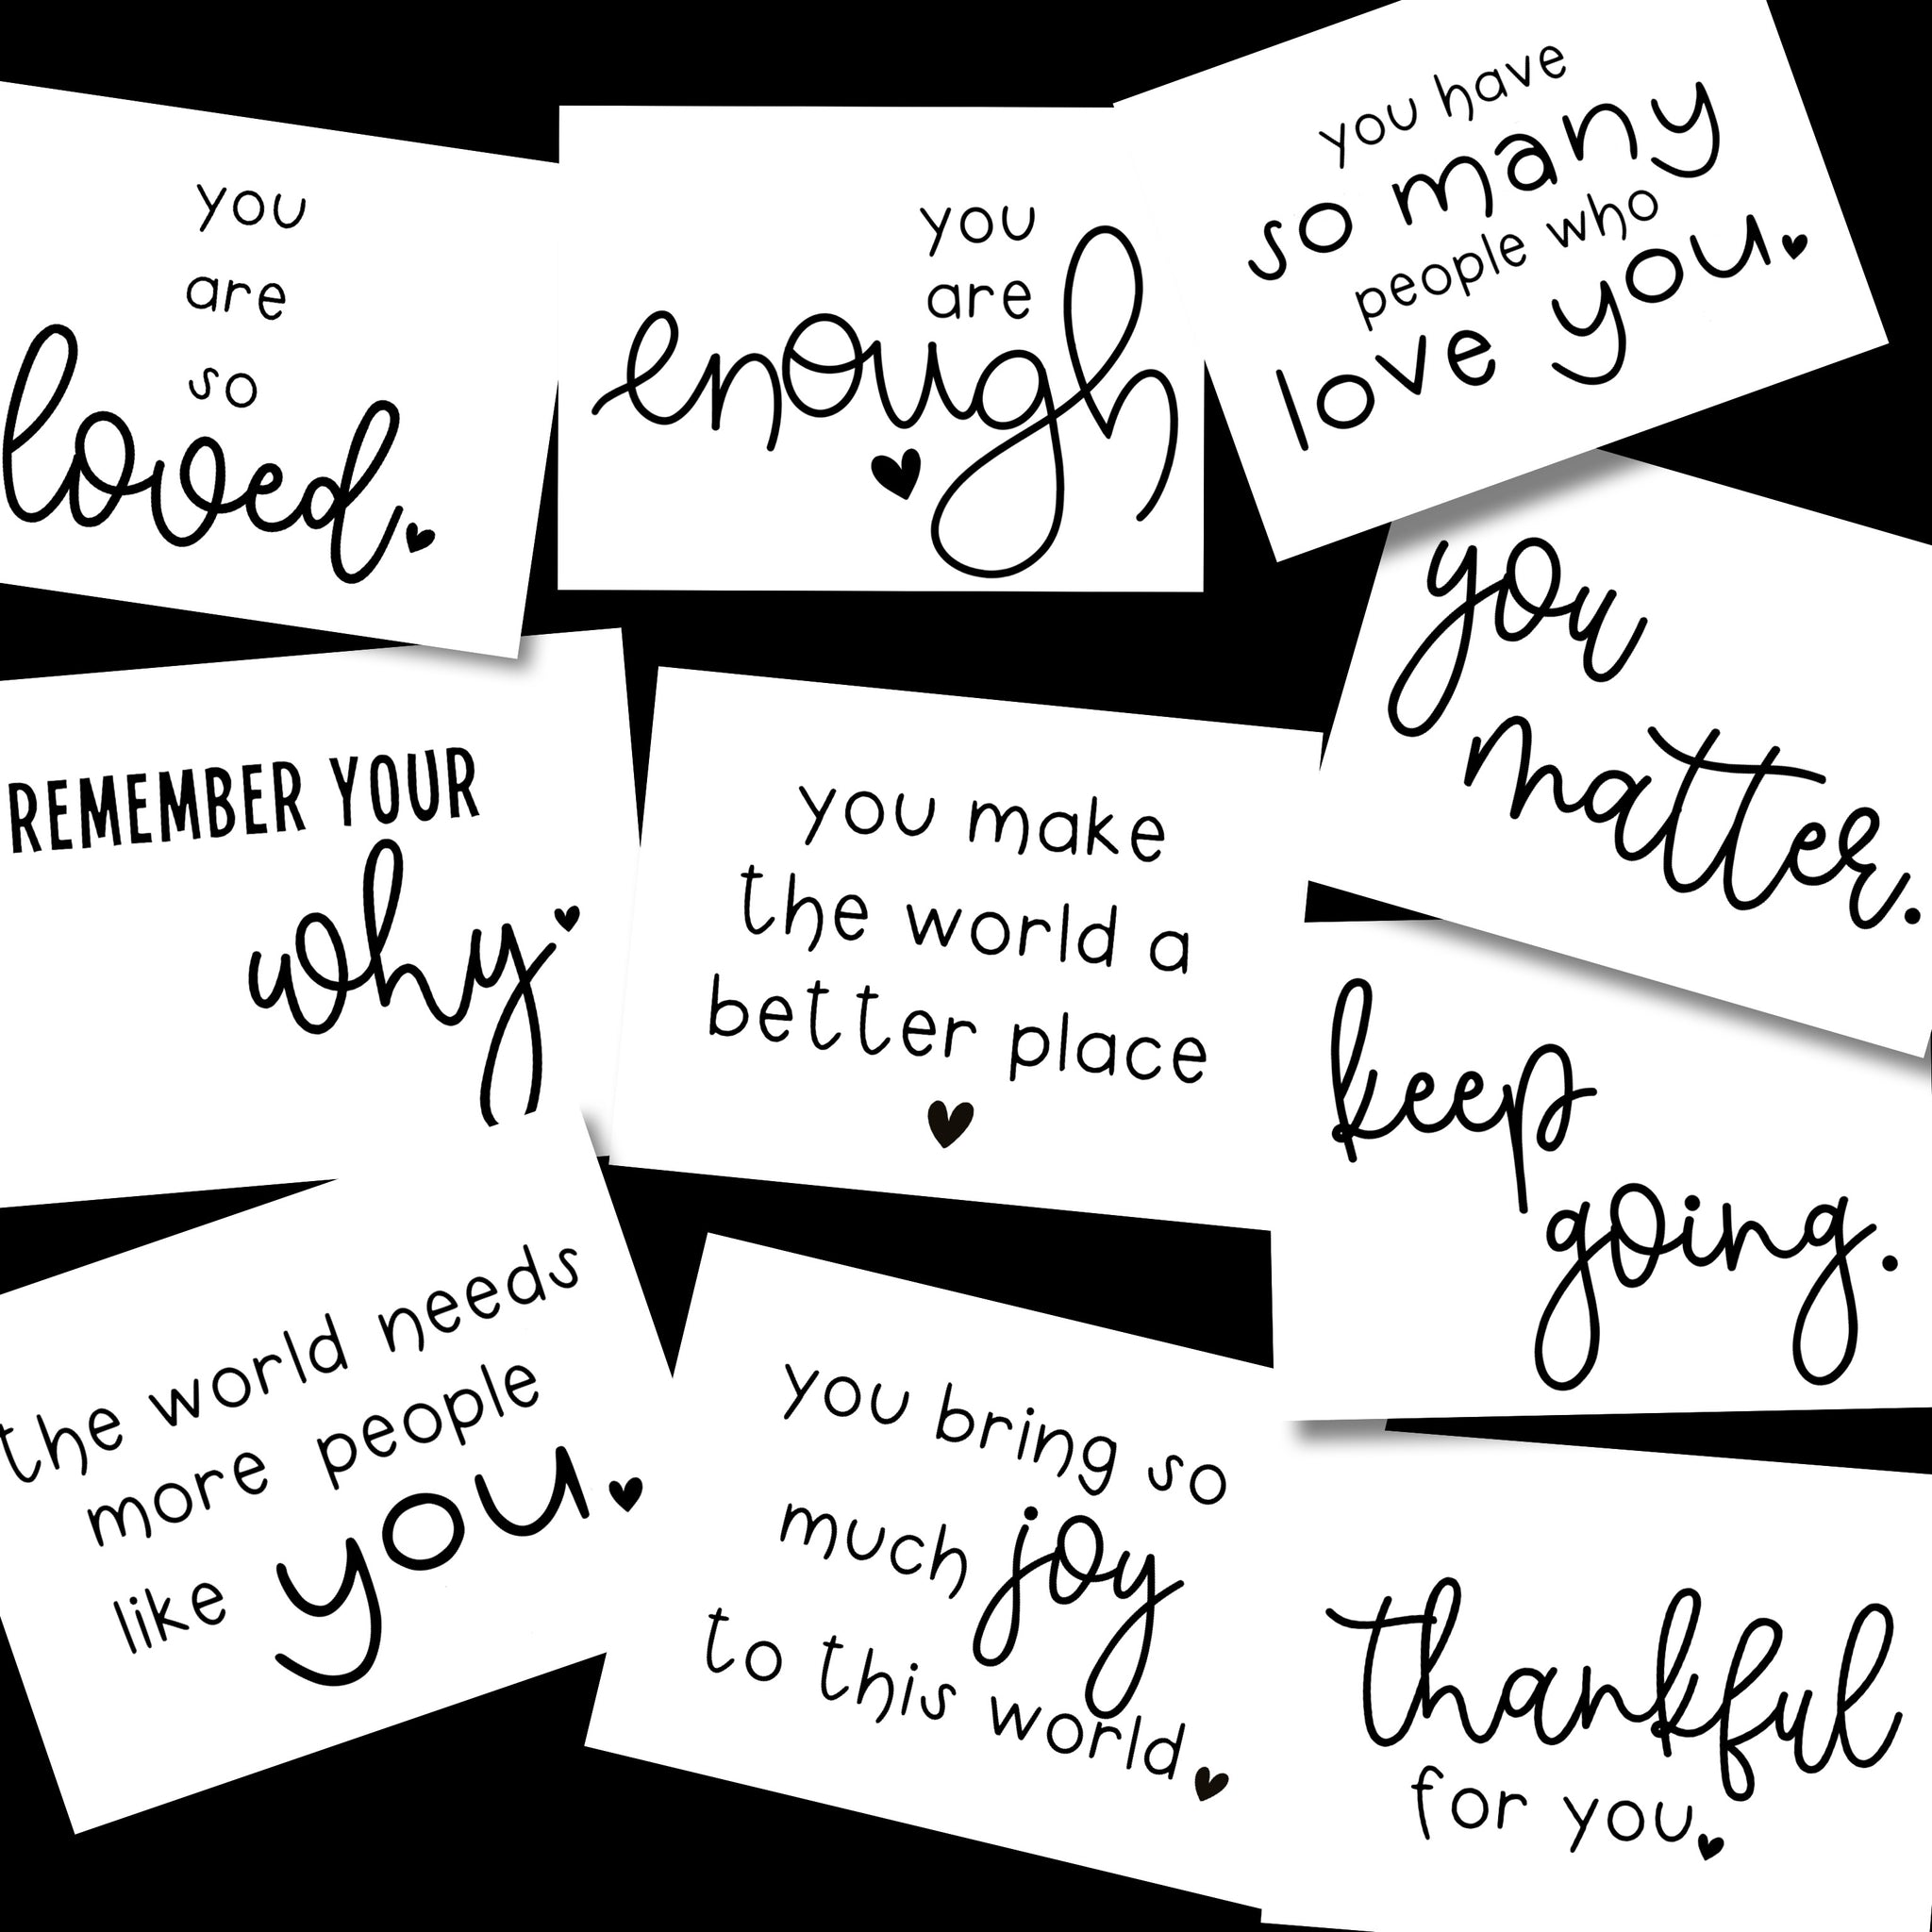 you
are
so
loved.
you
are
enough
you have
so many
people who
love you.
you
matter.
REMEMBER YOUR
why
you make
the world a
better place
keep
going.
the world needs
more people
like you.
you bring so
much joy
to this world.
thankful
for you.